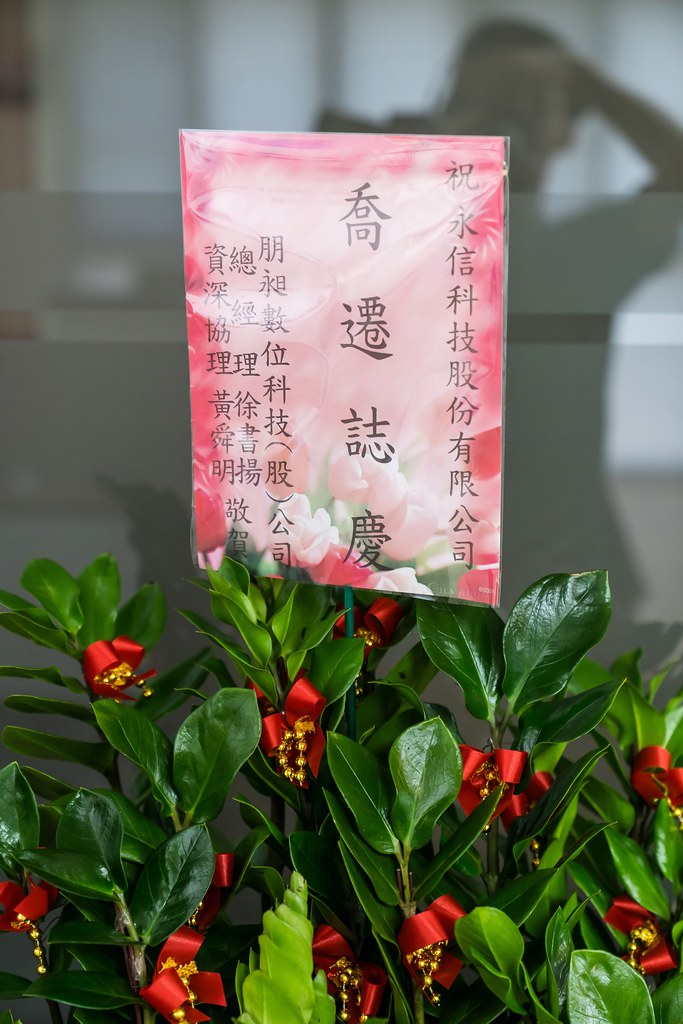 祝永信科技股份有限公司
喬遷誌慶
朋昶數位科技(股)公司
總經理 徐書揚
資深協理 黃舜明
敬賀